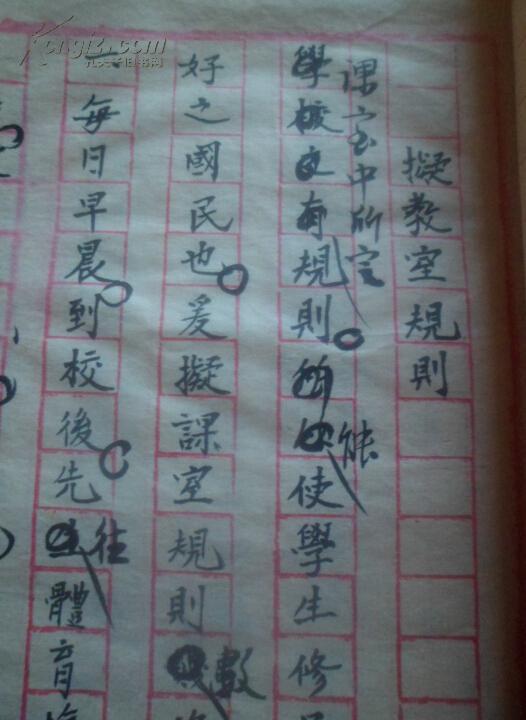 擬教室規則
課室中所定
學校之有規則
能
使學生修
好之國民也爰擬課室規則
數
一每日早晨到校後先
往
體育
Kongfz.com
孔夫子旧书网